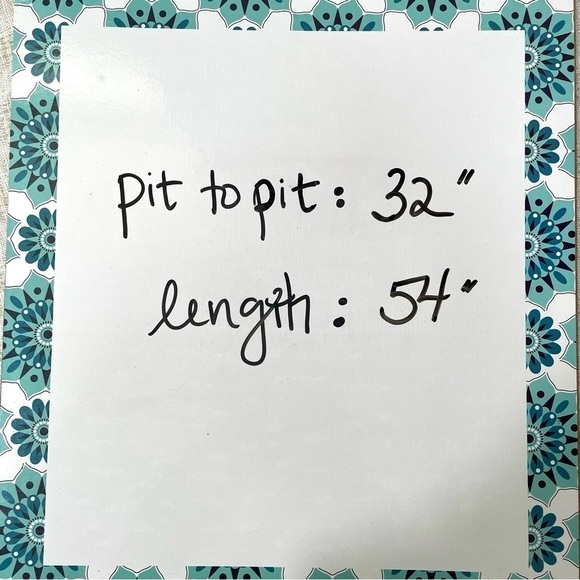 pit to pit: 32"
length: 54"